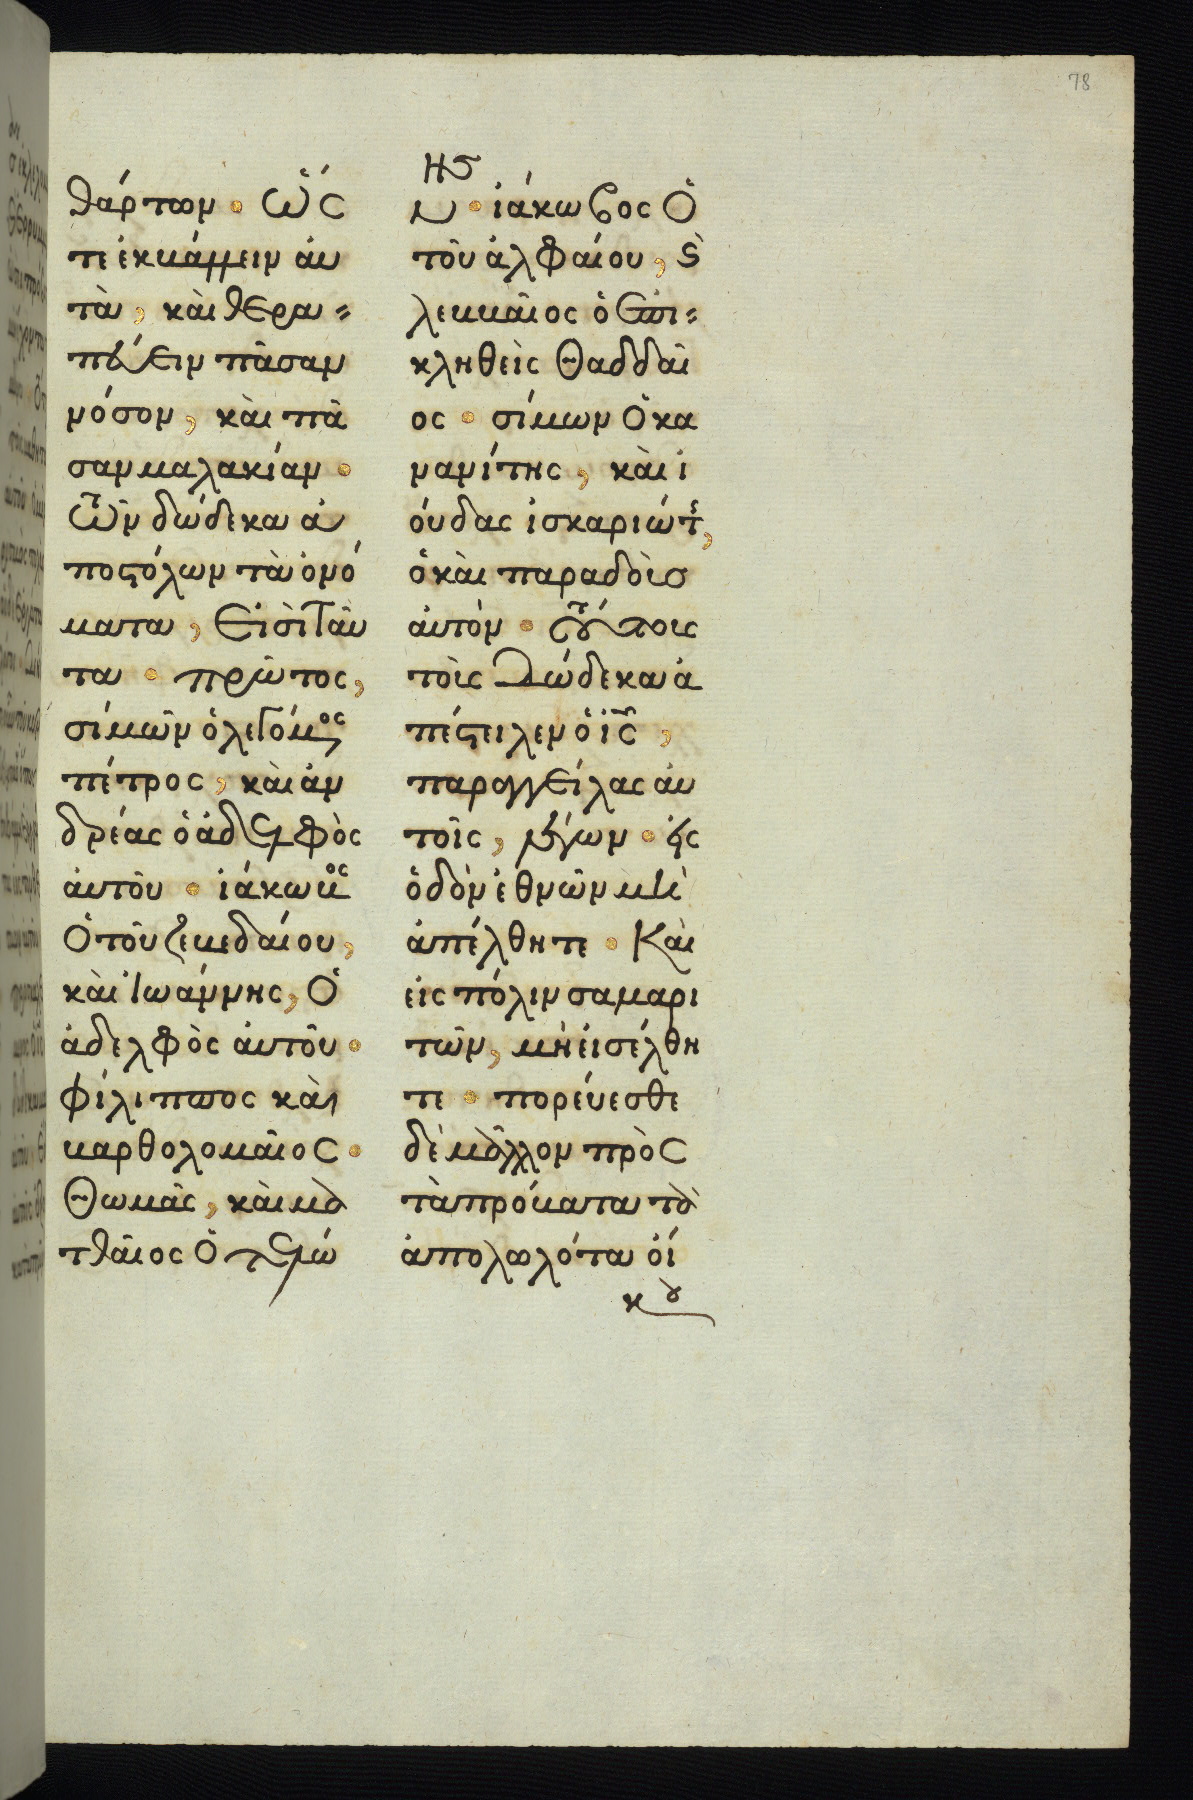 78
θάρτων · ὥς
τε ἐκβάλλειν ἀυ
τὰ, καὶ θερα=
πέυειν πᾶσαν
νόσον, καὶ πᾶ
σαν μαλακίαν ·
τῶν δώδεκα ἀ
ποϛόλων τὰ ὀνό
ματα, εἰσὶ ταῦ
τα · πρῶτος,
σίμων ὁ λεγόμος
πέτρος, καὶ ἀν
δρέας ὁ ἀδελφὸς
ἀυτοῦ · ἰάκωβος
ὁ τοῦ ζεβεδαίου,
καὶ ἰωάννης, ὁ
ἀδελφὸς ἀυτοῦ ·
φίλιππος καὶ
βαρθολομαῖος ·
θωμᾶς, καὶ μα
τθαῖος ὁ τελώ
ης
ν · ἰάκωβος ὁ
τοῦ ἀλφαίου, ϗ
λεββαῖος ὁ ἐπι=
κληθεὶς θαδδαῖ
ος · σίμων ὁ κα
νανίτης, καὶ ἰ
ούδας ἰσκαριώτ,
ὁ καὶ παραδοὺσ
ἀυτόν · τούτους
τοὺς δώδεκα ἀ
πέϛειλεν ὁ ις,
παραγγείλας ἀυ
τοῖς, λέγων · εἰς
ὁδὸν ἐθνῶν μὴ
ἀπέλθητε · καὶ
εἰς πόλιν σαμαρι
τῶν, μὴ εἰσέλθη
τε · πορέυεσθε
δὲ μᾶλλον πρὸς
τὰ πρόβατα τὰ
ἀπολωλότα ὀί
κου